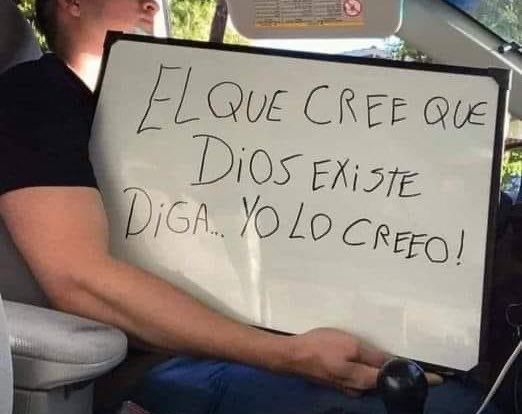 EL QUE CREE QUE
DiOS EXiSTE
DiGA... YO LO CREEO!